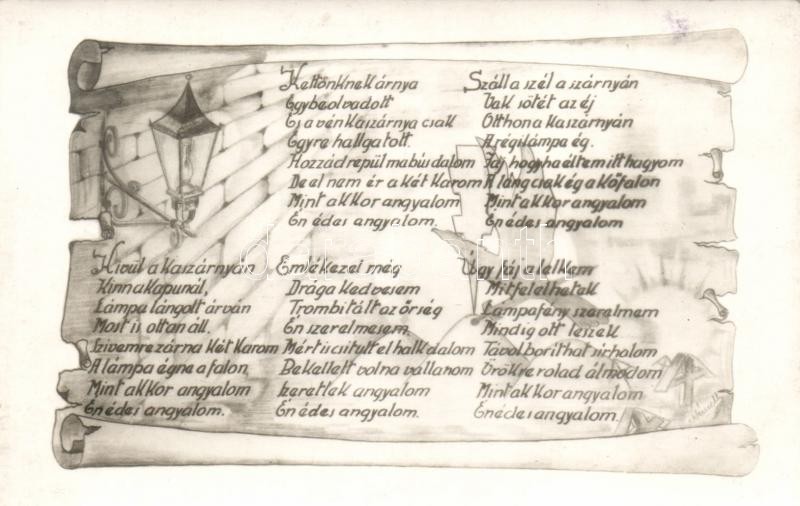 Kettőnknek árnya
Egybeolvadott
És a vén kaszárnya csak
Egyre hallgatott.
Hozzád repül ma bús dalom
De el nem ér a két karom
Mint akkor angyalom
Én édes angyalom.
Száll a szél a szárnyán
Vak sötét az éj
Otthon a kaszárnyán
A régi lámpa ég.
Fáj hogyha éltem itt hagyom
A láng csak ég a kőfalon
Mint akkor angyalom
Én édes angyalom
Kívül a kaszárnyán
Kinn a kapunál,
Lámpa lángolt árván
Most is ottan áll.
Szivemre zárna két karom
A lámpa égne a falon
Mint akkor angyalom
Én édes angyalom.
Emlékezel még
Drága kedvesem
Trombitált az őrség
Én szerelmesem.
Mért is csitult el halk dalom
Be kellett volna vallanom
Szeretlek angyalom
Én édes angyalom.
Úgy fáj a lelkem
Mit felelhetek
Lámpafény szerelmem
Mindig ott leszek
Távol boríthat sirhalom
Örökre rolad álmodom
Mint akkor angyalom
Én édes angyalom.